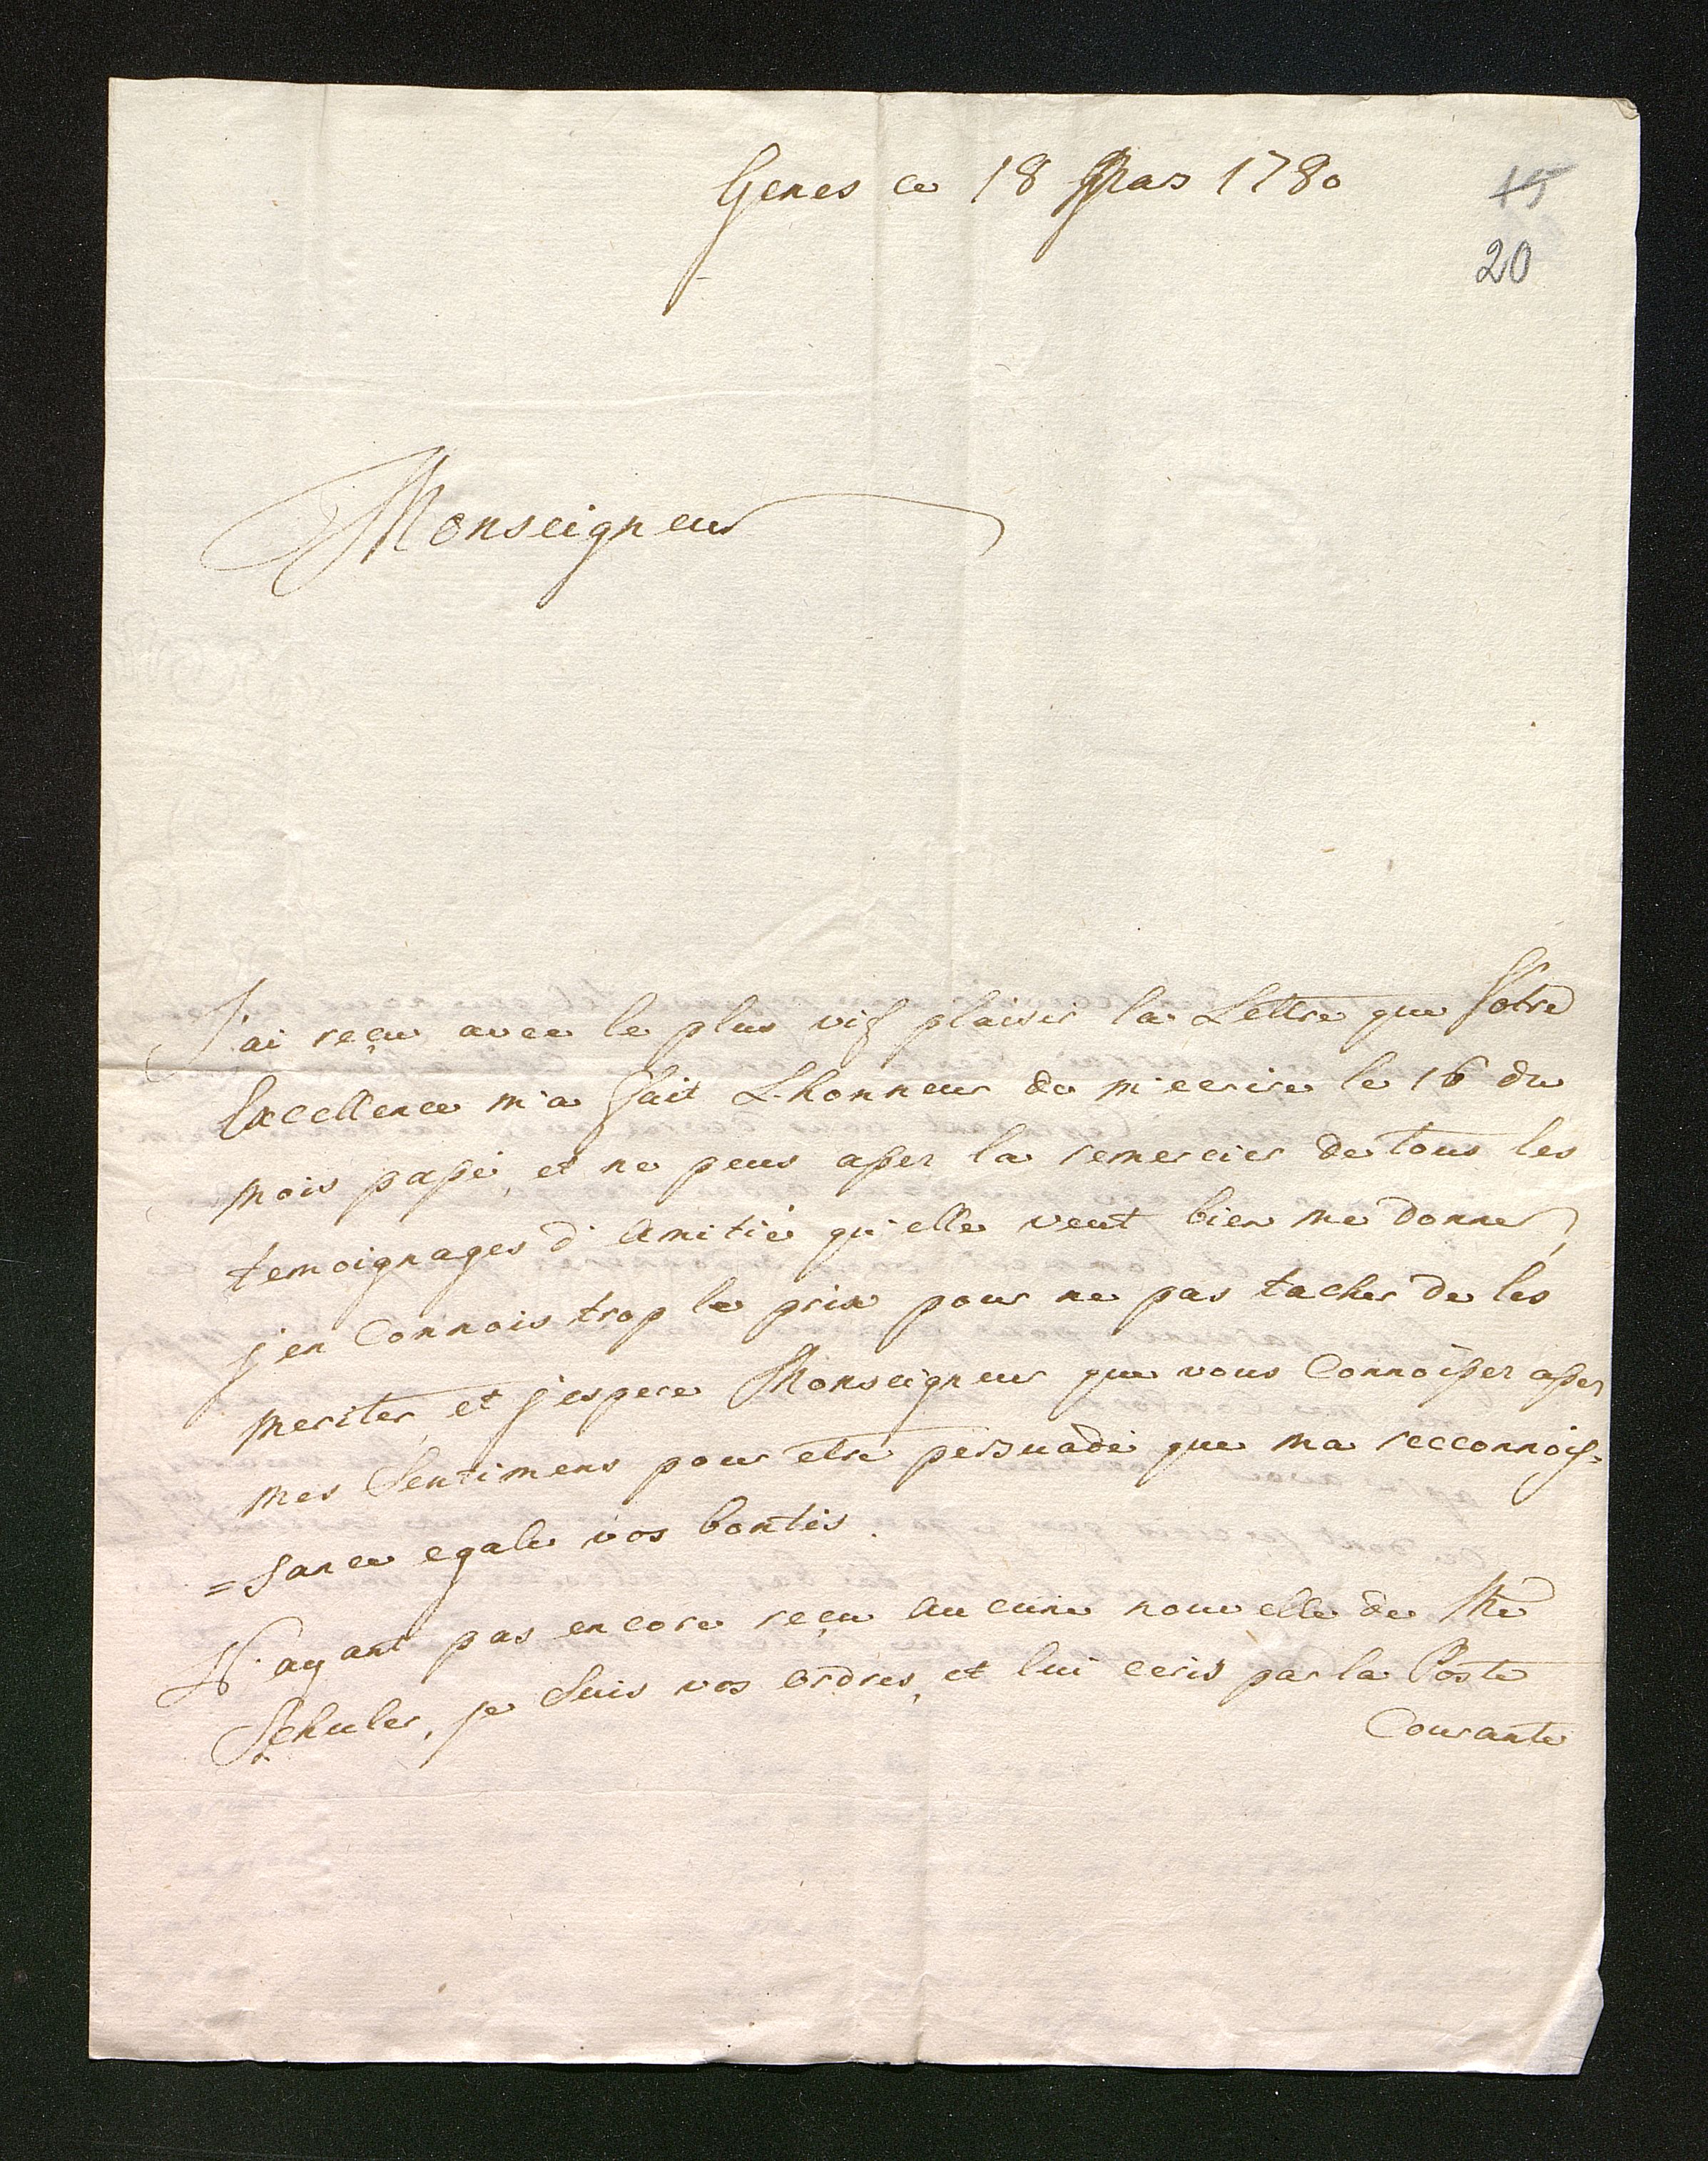 Genes ce 18 Mars 1780
15
20
Monseigneur
J'ai reçu avec le plus vif plaisir la Lettre que Votre
Excellence m'a fait L'honneur de m'ecrire le 16 du
mois passé, et ne peus assez la remercier de tous les
temoignages d'amitié qu'elle veut bien me donner,
j'en Connois trop le prix pour ne pas tacher de les
meriter, et j'espere Monseigneur que vous Connoissez assez
mes Sentimens pour etre persuadé que ma recconnois=
=sance egale vos bontés.
N'ayant pas encore reçu aucune nouvelle de Mr
Schuler, je Suis vos ordres, et lui ecris par la Poste
Courante